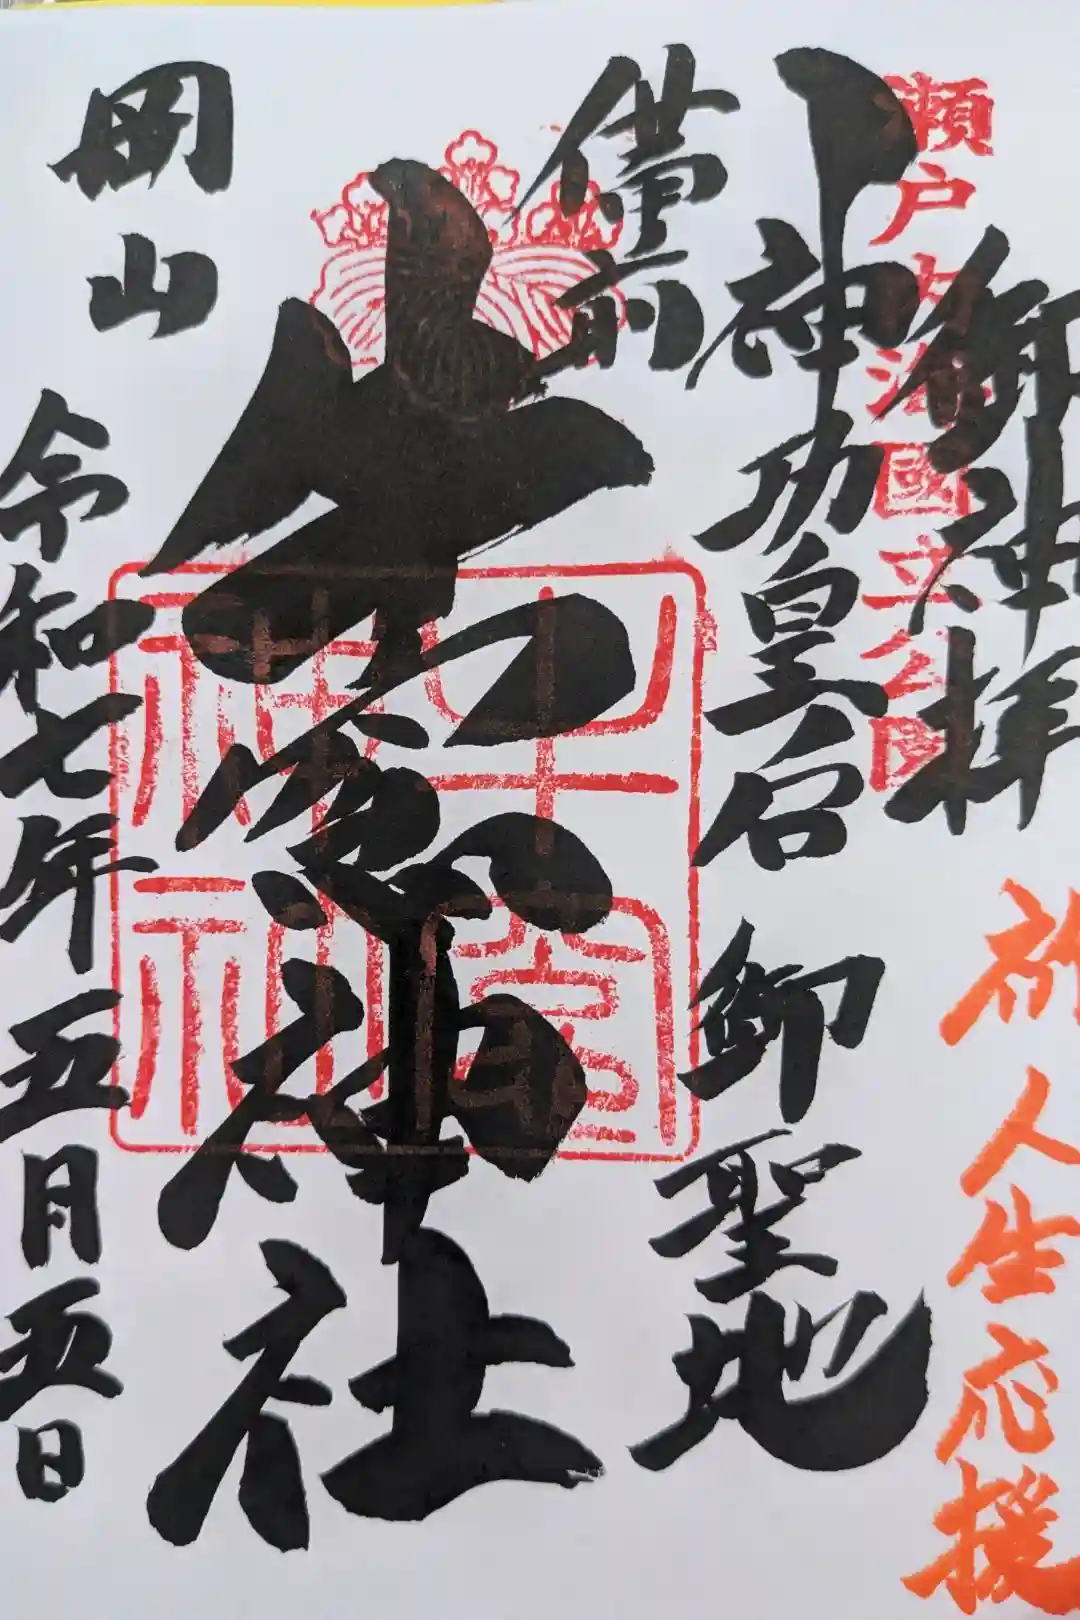 御神拝
祈 人生応援
瀬戸内海國立公園
神功皇后 御聖地
備前
牛窓神社
牛窗神社
岡山
令和七年五月五日